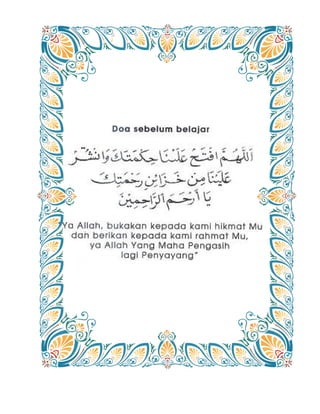 Doa sebelum belajar
اَللّٰهُمَّ افْتَحْ عَلَيْنَا حِكْمَتَكَ وَانْشُرْ
عَلَيْنَا مِنْ خَزَائِنِ رَحْمَتِكَ
يَا أَرْحَمَ الرَّاحِمِيْنَ
"Ya Allah, bukakan kepada kami hikmat Mu
dah berikan kepada kami rahmat Mu,
ya Allah Yang Maha Pengasih
lagi Penyayang"